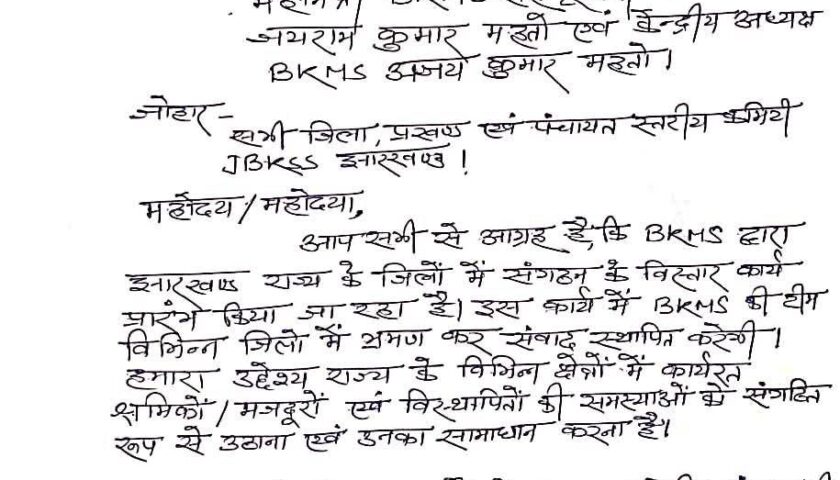 जयराम कुमार महतो एवं केन्द्रीय अध्यक्ष
BKMS अजय कुमार महतो।
जोहार -
सभी जिला, प्रखण्ड एवं पंचायत स्तरीय कमिटी
JBKSS झारखण्ड !
महोदय / महोदया,
आप सभी से आग्रह है, कि BKMS द्वारा
झारखण्ड राज्य के जिलों में संगठन के विस्तार कार्य
प्रारंभ किया जा रहा है। इस कार्य में BKMS की टीम
विभिन्न जिलों में भ्रमण कर संवाद स्थापित करेगी।
हमारा उद्देश्य राज्य के विभिन्न क्षेत्रों में कार्यरत
श्रमिकों / मजदूरों एवं विस्थापितों की समस्याओं को संगठित
रूप से उठाना एवं उनका सामाधान करना है।